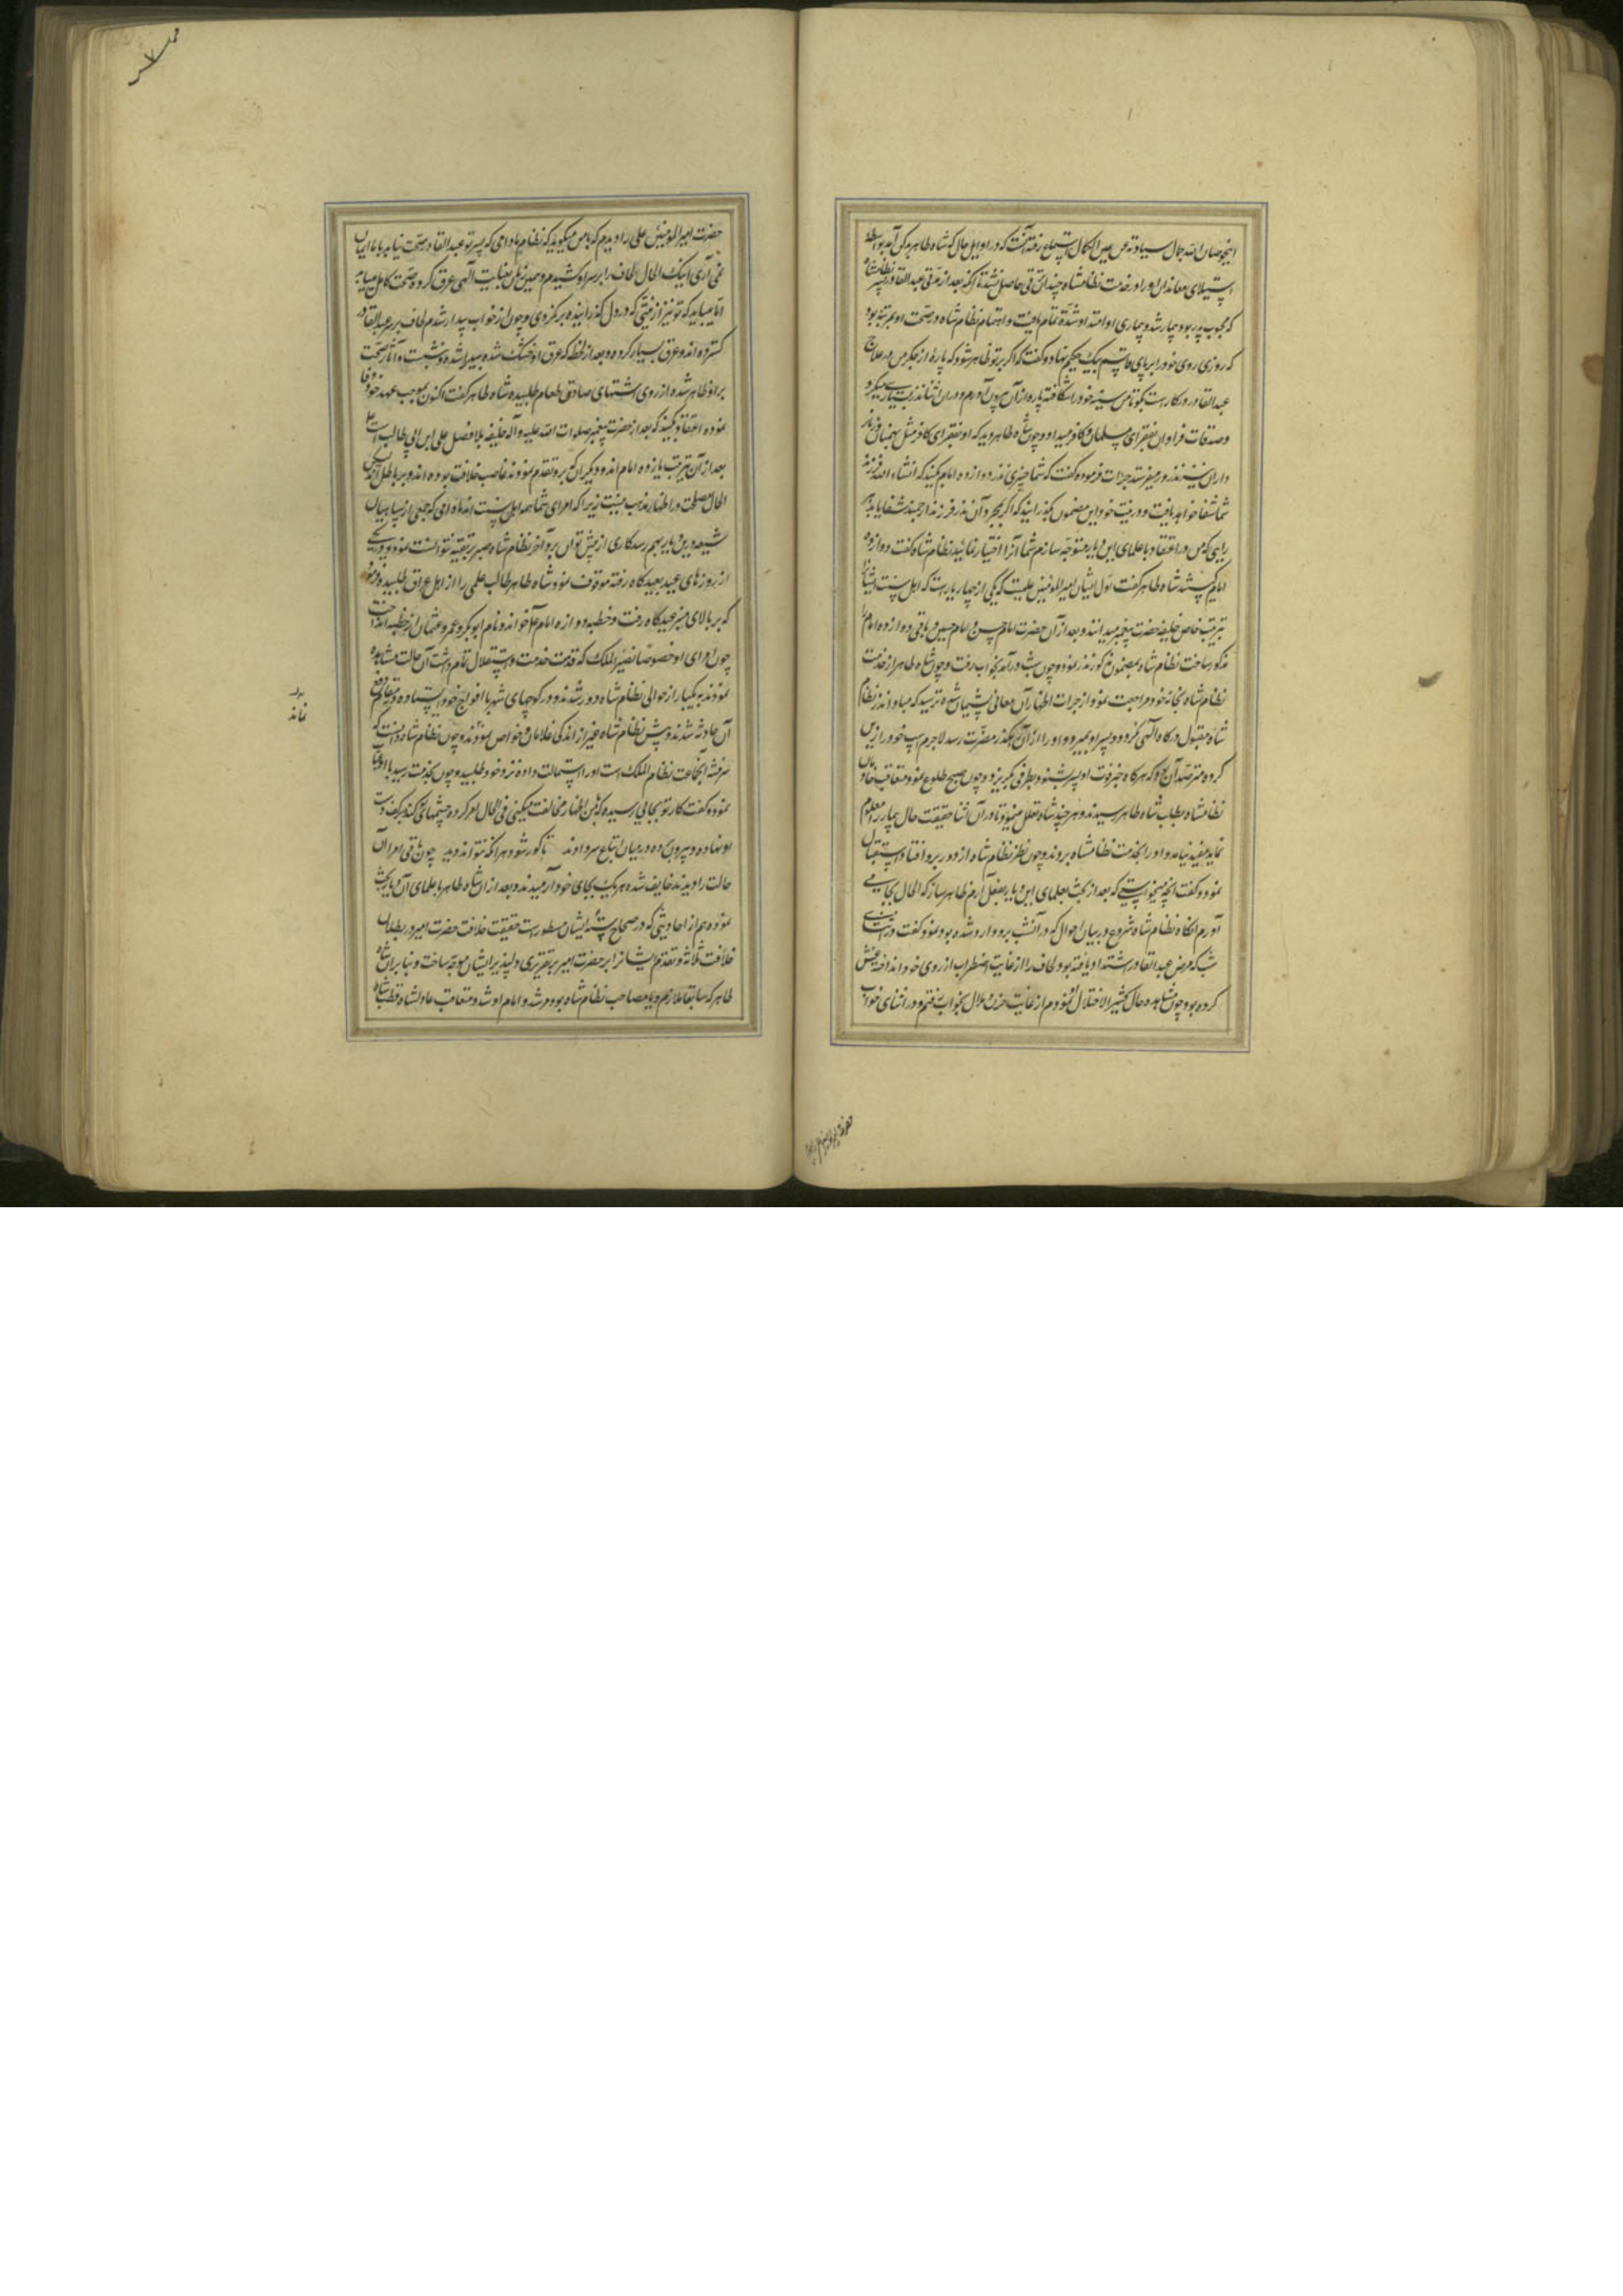 اینجو صان الله جمال سیادته عن عین الکمال استماع رفته آنست که در اوایل حال که شاه طاهر بدکن آمد بواسطه
استیلای معاندان او را در خدمت نظامشاه چندان ترقی حاصل نشد تا آنکه بعد از مدتی عبدالقادر پسر نظامشاه
که محبوب پدر بود بیمار شد و بیماری او امتداد و شدت تمام یافت و اهتمام نظام شاه در صحت او بمرتبه بود
که روزی روی خود را بر پای قاسم بیک حکیم نهاد و گفت که اگر بر تو ظاهر شود که پارهٔ از جگر من در علاج
عبدالقادر در کار است بگو تا من سینه خود را شکافته پاره از آن بیرون آورم و در آن اثنا نذر بسیار میکرد
و صدقات فراوان بفقرای مسلمان و کافر میداد و چون شاه طاهر دید که او بفقرای کافر مثل برهمنان و زنار
داران نیز نذر و میفرستد جرات فرموده گفت که شما چیزی نذر دوازده امام بکنید که انشاء الله فرزند
شما شفا خواهد یافت و در نیت خود این مضمون بگذرانید که اگر بمجرد آن نذر فرزند ارجمند شفا یابد
رایی که من در اعتقاد با علمای این دیار متوجه سازم شما آنرا اختیار نمائید نظام شاه گفت دوازده
امام کیستند شاه طاهر گفت اول ایشان امیرالمومنین علیست که یکی از چهار یار است که اهل سنت ایشانرا
بترتیب خاص خلیفه حضرت پیغمبر میدانند و بعد از آن حضرت امام حسن و امام حسین و باقی دوازده امام را
مذکور ساخت نظام شاه بمضمون مذکور نذر نمود و چون شب درآمد بخواب رفت و چون شاه طاهر از خدمت
نظام شاه بخانه خود مراجعت نمود از جرات اظهار آن معانی پشیمان شده ترسید که مبادا نذر نظام
شاه مقبول درگاه الهی نگردد و پسر او بمیرد و او را از آن رهگذر مضرت رسد لاجرم اسپ خود را زین
کرده مترصد آن بود که هرگاه خبر فوت او پسر بشنود بطرفی بگریزد و چون صبح طلوع نمود و متعاقب خادمان
نظامشاه بطلب شاه طاهر رسیدند و هر چند شاه تعلل مینمود تا در آن اثنا حقیقت حال بیمار را معلوم
نماید مفید نیامد و او را بخدمت نظامشاه بردند و چون نظر نظام شاه از دور برو افتاد استقبال
نمود و گفت آنچه میخواستی که بعد از بحث با علمای این دیار بفعل آرم ظاهر ساز که الحال بجا می
آورم آنگاه نظام شاه شروع در بیان احوال که در آنشب برو وارد شده بود نمود و گفت در اثنای
شب که مرض عبدالقادر اشتداد یافته بود و لحاف را از غایت اضطراب از روی خود انداخته غش
کرده بود چون مشاهده حال کثیر الاختلال نمودم از غایت حزن و ملال بخواب رفتم و در اثنای خواب
حضرت امیرالمومنین علی را دیدم که با من میگوید که نظام مادامی که پسر تو عبدالقادر صحت نیابد بما ایمان
نمی آری اینک الحال لحاف را بر سر او کشیدم و همین زمان بعنایت الهی عرق کرده صحت کامل میابد
اما میباید که تو نیز از نیتی که در دل گذرانیده برنگردی و چون از خواب بیدار شدم لحاف بر سر عبدالقادر
گسترده اند و عرق بسیار کرده و بعد از لحظه که عرق او خشک شده بیدار شده و نشست و آثار صحت
بر او ظاهر شده از روی اشتهای صادق طعام طلبیده شاه طاهر گفت اکنون بموجب عهد خود وفا
نموده اعتقاد کنید که بعد از حضرت پیغمبر صلوات الله علیه و آله خلیفه بلا فصل علی ابن ابی طالب است
بعد از آن بترتیب یازده امام اند و دیگران که برو تقدم نمودند غاصب خلافت بوده اند و بر باطل اند لیکن
الحال مصلحت در اظهار مذهب نیست زیرا که امرای شما همه اهل سنت اند مادامی که جمعی از سپاهیان
شیعه درین دیار بهم رسد کاری از پیش توان برد آخر نظام شاه صبر بر تقیه نتوانست نمود و در یکی
از روزهای عید بعیدگاه رفته موقوف نمود شاه طاهر طالب علمی را از اهل عراق طلبیده فرمود
که بر بالای منبر عیدگاه رفت و خطبه دوازه امام خواند و نام ابوبکر و عمر و عثمان از خطبه انداخت
چون امرای او خصوصا نصیر الملک که قدمت خدمت و استقلال تمام داشت آن حالت مشاهده
نمودند بیکبار از حوالی نظام شاه دور شدند و در کوچهای شهر با افواج خود ایستاده در مقام دفع
آن حادثه شدند و پیش نظام شاه غیر از اندکی غلامان و خواص نبودند و چون نظام شاه دانست که
سرفتنه آنجماعت نظام الملک است او را استمالت داده نزد خود طلبید و چون بخدمت رسید با او عتاب
نمود و گفت کار تو بجایی رسیده که بمن اظهار مخالفت میکنی فی الحال امر کرده چشمهای او کنده بر کف دست
او نهاده و بیرون برده در میان اتباع سر دادند تا کور شود هر آنکه نتواند دید چون باقی امرا آن
حالت را دیدند خایف شده هر یک بجای خود آرمیدند و بعد از آن شاه طاهر با علمای آن دیار بحث
نموده هم از احادیثی که در صحاح سته ایشان مسطور است حقیقت خلافت حضرت امیر و بطلان
خلافت ثلاثه و تقدم ایشانرا بر حضرت امیر بتقریری دلپذیر ایشان موجه ساخت و بنابر آن شاه
طاهر که سابقا ملازم و یا مصاحب نظام شاه بود مرشد و امام او شد و متعاقب عادلشاه قطب شاه
نماند